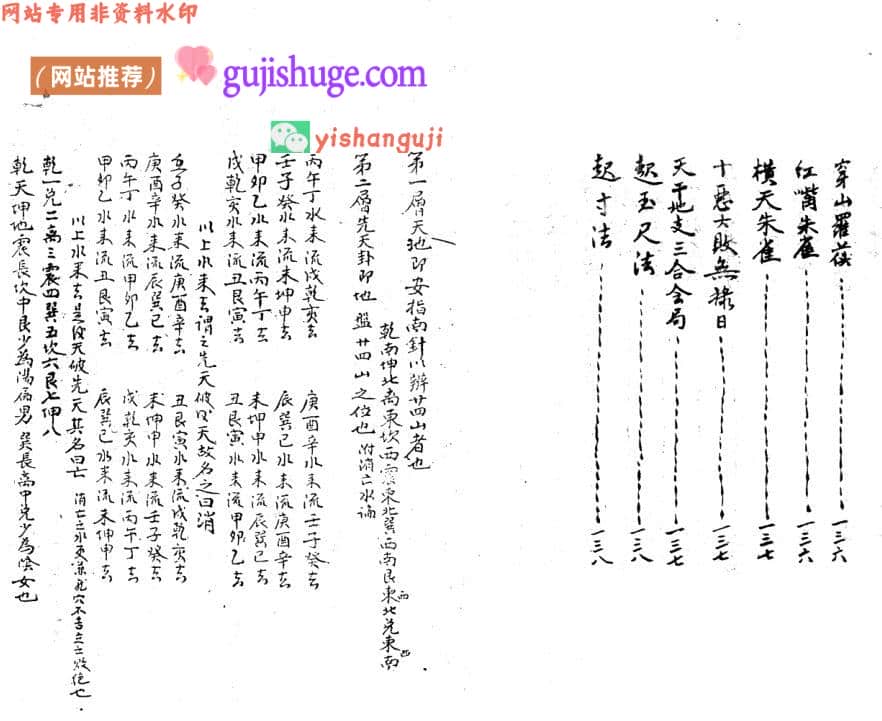 网站专用非资料水印
（网站推荐）
gujishuge.com
yishanguji
穿山羅蔆 一三六
紅嘴朱雀 一三六
橫天朱雀 一三七
十惡大敗無祿日 一三七
天干地支三合会局 一三七
起玉尺法 一三八
起寸法 一三八
第一層天池即安指南針以辦廿四山者也
第二層先天卦即地盤廿四山之位也 附消亡水論
乾南坤北离東坎西震東北巽西南艮西北兌東南
丙午丁水来流戌乾亥去 庚酉辛水来流壬子癸去
壬子癸水来流未坤申去 辰巽巳水来流庚酉辛去
甲卯乙水来流丙午丁去 未坤申水来流辰巽巳去
戌乾亥水来流丑艮寅去 丑艮寅水来流甲卯乙去
以上水来去謂之先天破后天故名之曰消
壬子癸水来流庚酉辛去 丑艮寅水来流戌乾亥去
庚酉辛水来流辰巽巳去 未坤申水来流壬子癸去
丙午丁水来流甲卯乙去 戌乾亥水来流丙午丁去
甲卯乙水来流丑艮寅去 辰巽巳水来流未坤申去
以上水来去是后天破先天其名曰亡 消亡之水更兼龍穴不吉立主敗绝也
乾一兌二离三震四巽五坎六艮七坤八
乾天坤地震長坎中艮少為陽為男 巽長离中兌少為陰女也